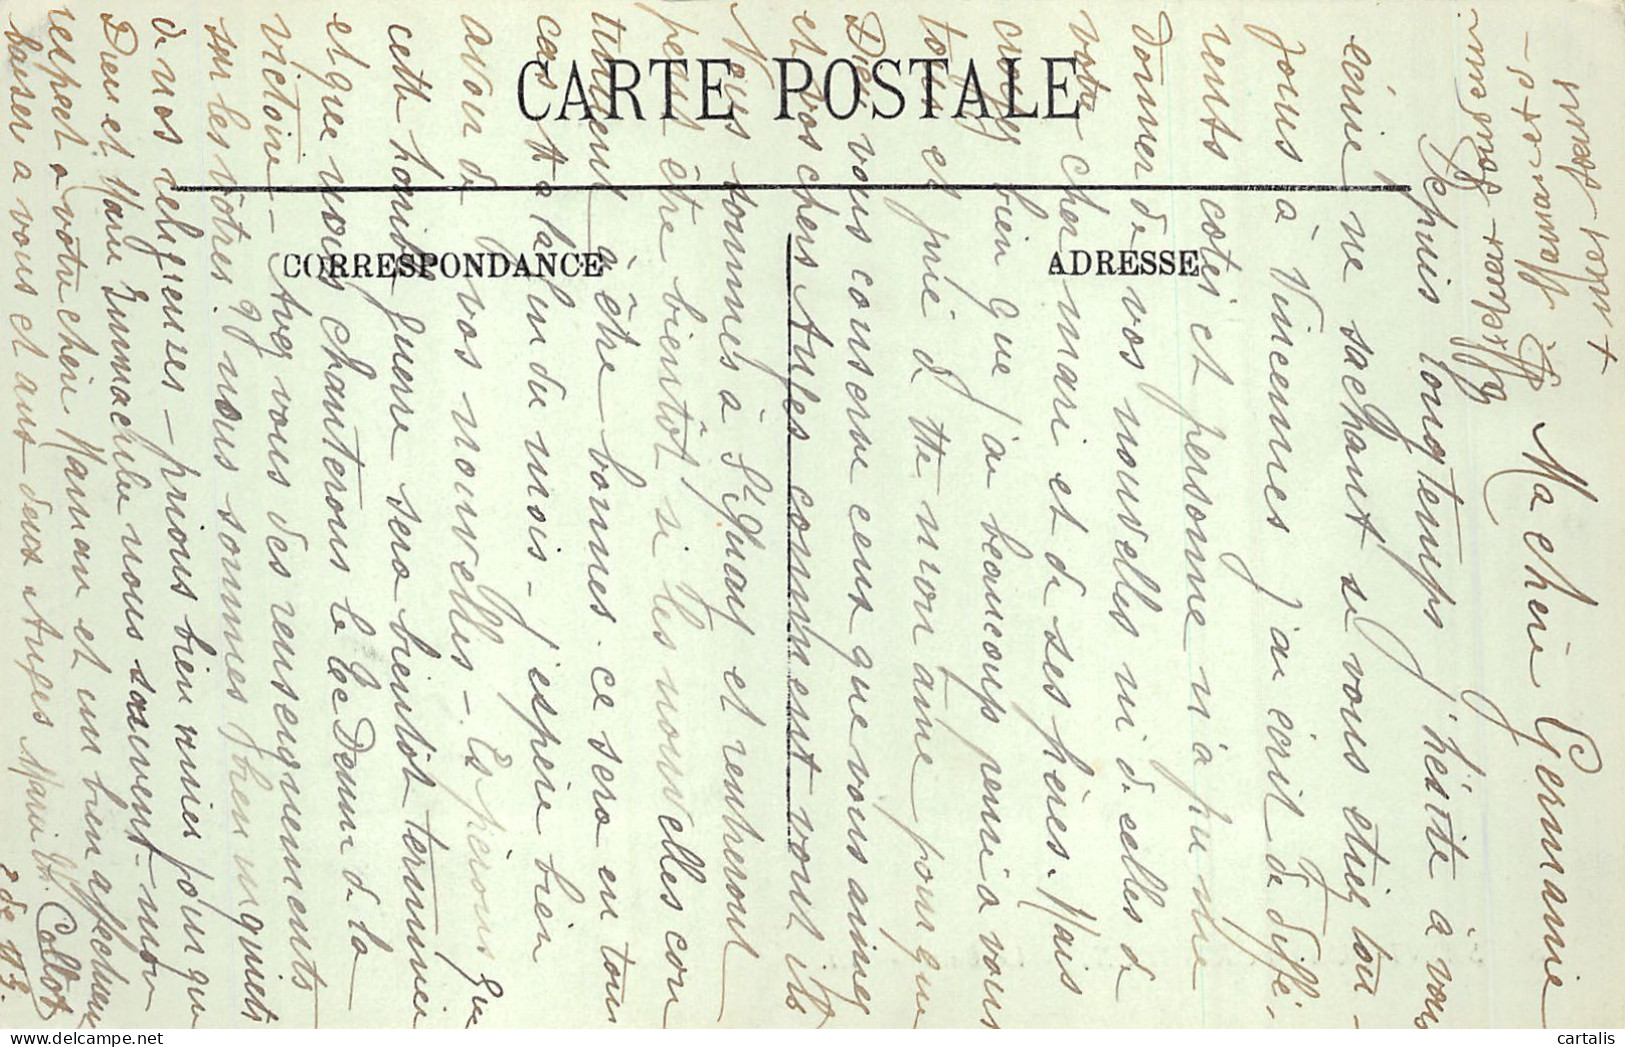 CARTE POSTALE
CORRESPONDANCE
ADRESSE
Ma chérie Germaine
Depuis longtemps j'hésite à vous
écrire ne sachant si vous étiez tou-
jours à Vincennes j'ai écrit de diffé-
rents cotés et personne n'a pu me
donner de vos nouvelles ni de celles de
votre cher mari et de ses frères. Mais
croyez bien que j'ai beaucoup pensé à vous
tous et prié de tte mon âme pour que
Dieu vous conserve ceux que vous aimez
et vos chers Anges comment vont ils
Nous sommes à St Quay et rentrerons
peut être bientôt si les nouvelles con
tinuent à être bonnes. ce sera en tous
cas à la fin du mois - J'espère bien
avoir de vos nouvelles - Espérons que
cette horrible guerre sera bientôt terminée
et que nous chanterons le Te Deum de la
victoire - Avez vous des renseignements
sur les vôtres? nous sommes bien inquiets
de nos religieuses - prions bien unies pour que
Dieu et Marie Immaculée nous sauvent - mon
respect à votre chère Maman et un bien affectueux
baiser à vous et aux deux Anges Marie Th. Collot